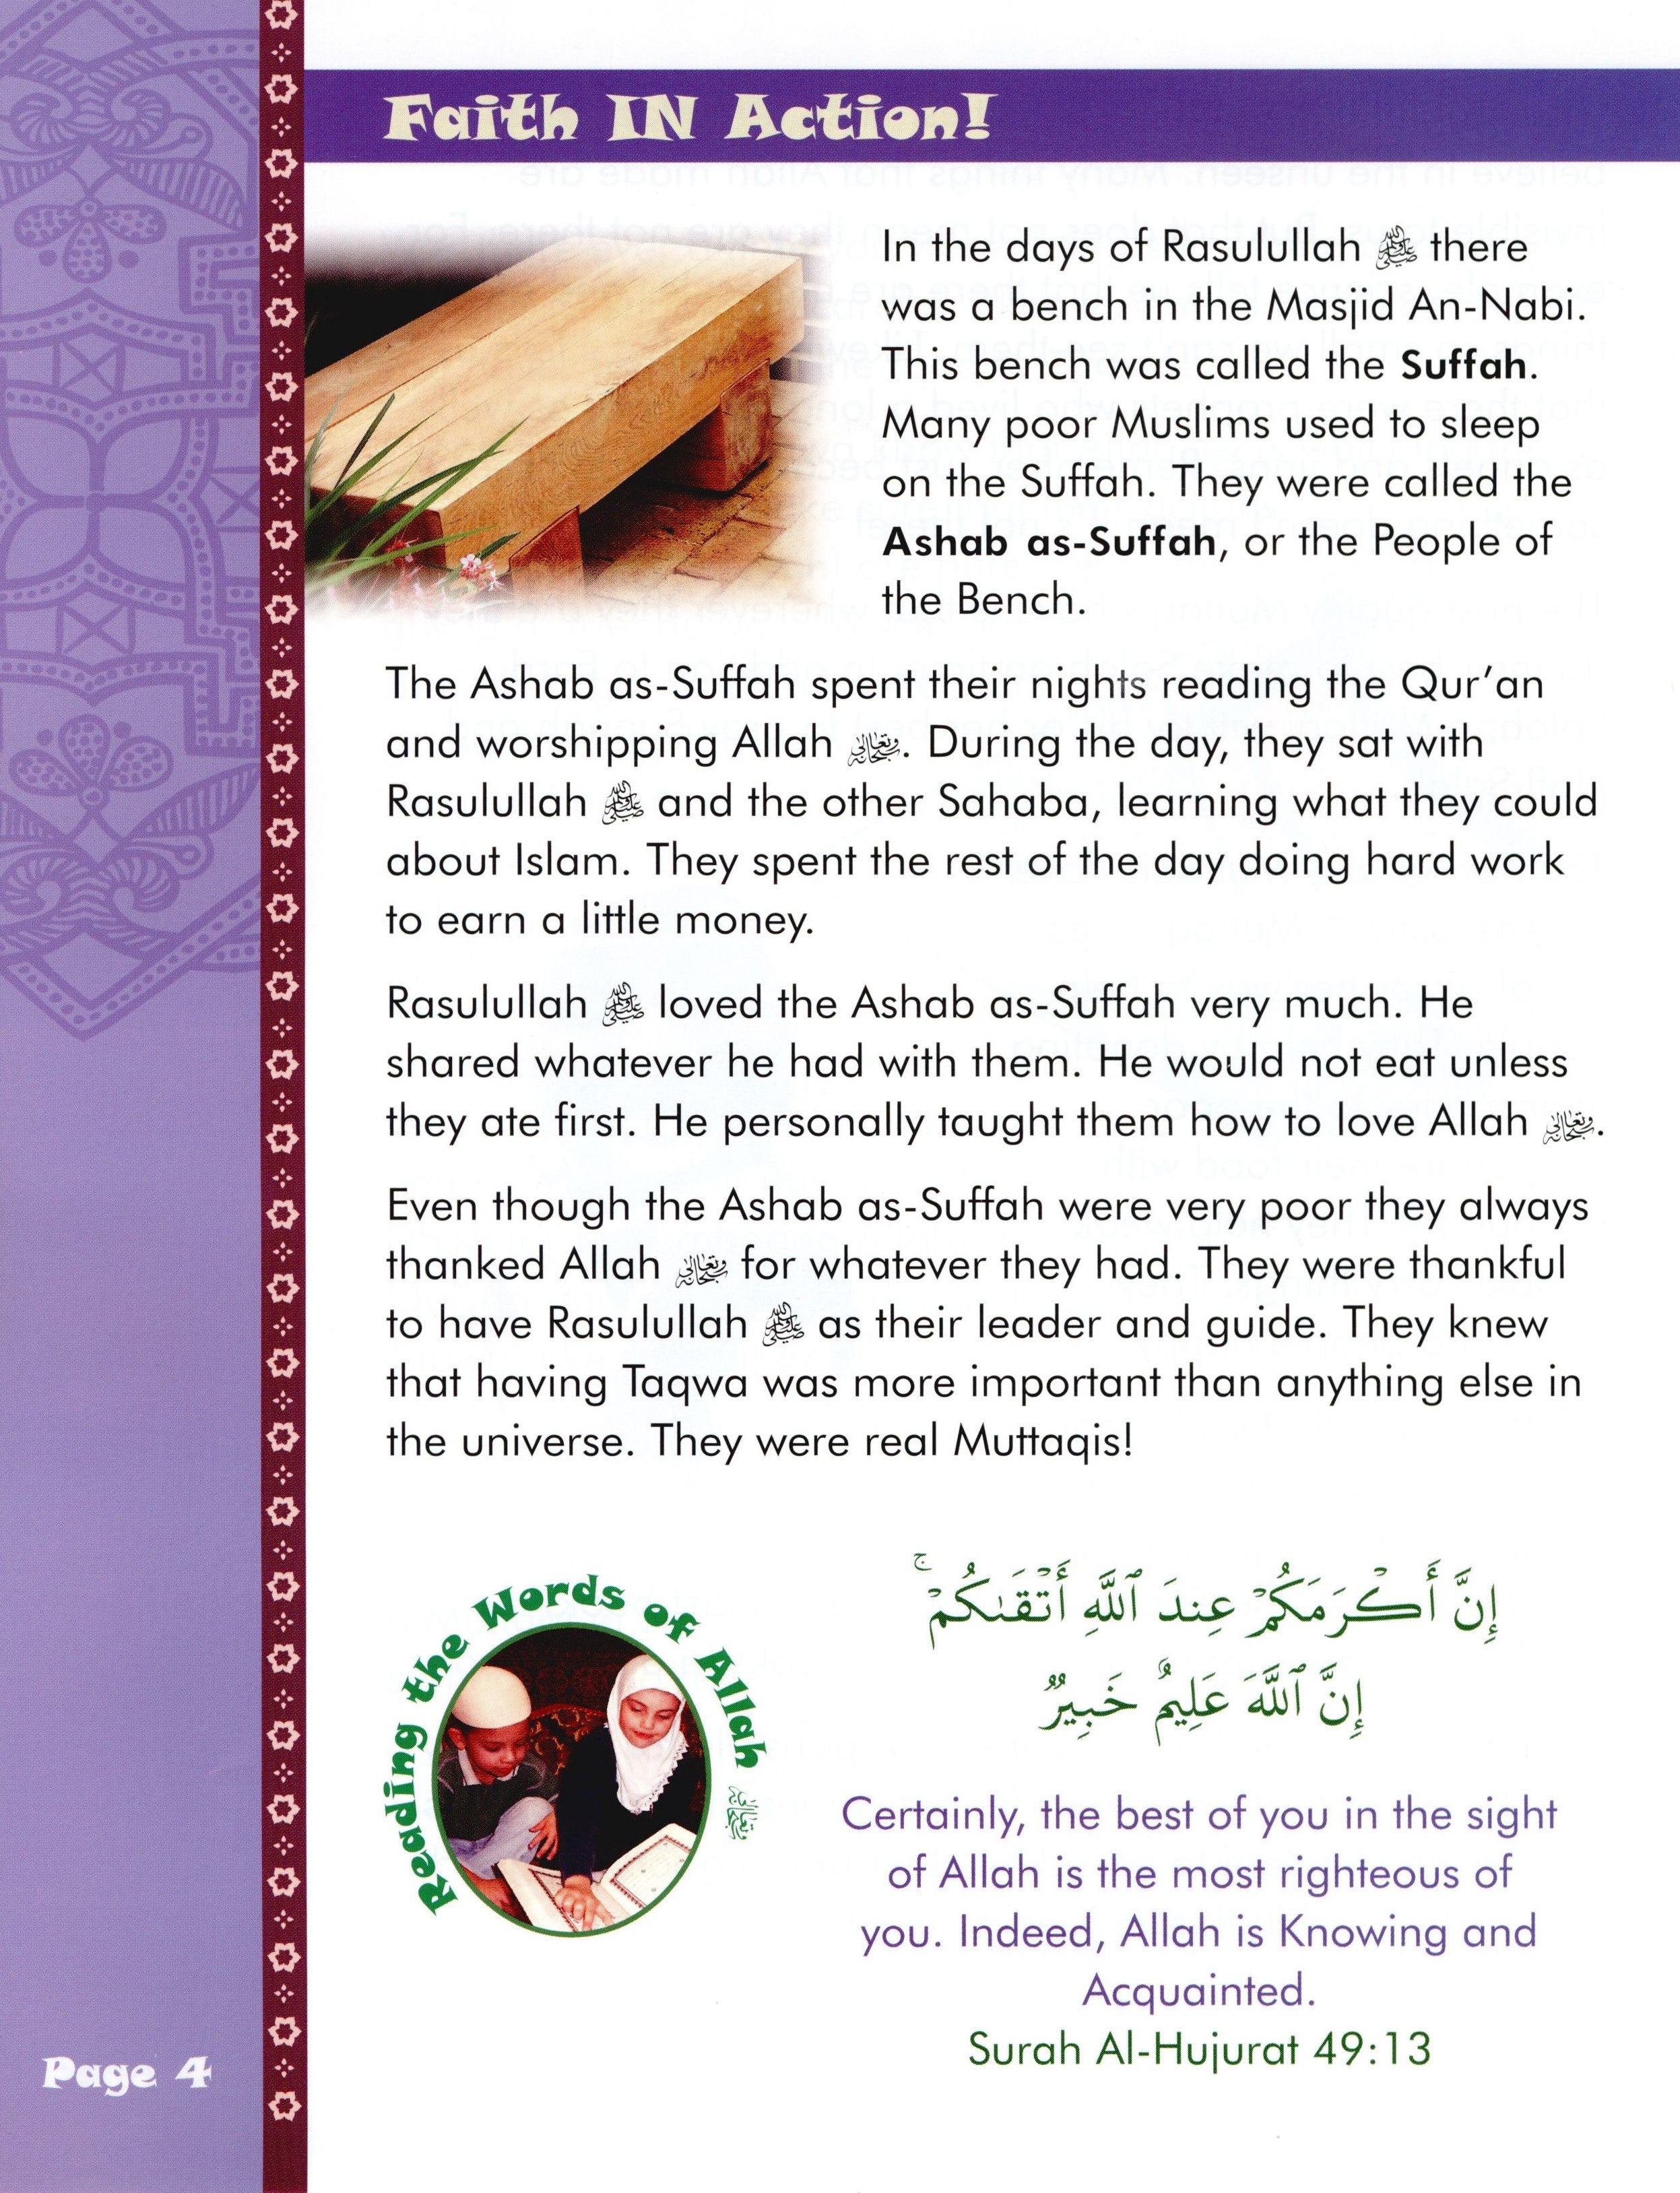 Faith IN Action!
In the days of Rasulullah ﷺ there
was a bench in the Masjid An-Nabi.
This bench was called the Suffah.
Many poor Muslims used to sleep
on the Suffah. They were called the
Ashab as-Suffah, or the People of
the Bench.
The Ashab as-Suffah spent their nights reading the Qur'an
and worshipping Allah سبحانه وتعالى. During the day, they sat with
Rasulullah ﷺ and the other Sahaba, learning what they could
about Islam. They spent the rest of the day doing hard work
to earn a little money.
Rasulullah ﷺ loved the Ashab as-Suffah very much. He
shared whatever he had with them. He would not eat unless
they ate first. He personally taught them how to love Allah سبحانه وتعالى.
Even though the Ashab as-Suffah were very poor they always
thanked Allah سبحانه وتعالى for whatever they had. They were thankful
to have Rasulullah ﷺ as their leader and guide. They knew
that having Taqwa was more important than anything else in
the universe. They were real Muttaqis!
Reading the Words of Allah سبحانه وتعالى
إِنَّ أَكْرَمَكُمْ عِندَ ٱللَّهِ أَتْقَىٰكُمْ ۚ
إِنَّ ٱللَّهَ عَلِيمٌ خَبِيرٌ
Certainly, the best of you in the sight
of Allah is the most righteous of
you. Indeed, Allah is Knowing and
Acquainted.
Surah Al-Hujurat 49:13
Page 4